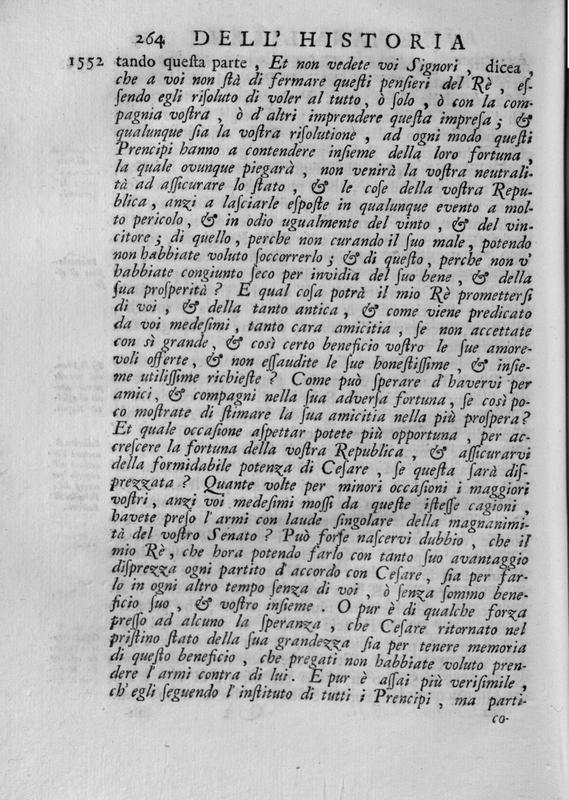 264 DELL' HISTORIA
1552 tando queſta parte, Et non vedete voi Signori, dicea,
che a voi non ſtà di fermare queſti penſieri del Rè, eſ-
ſendo egli riſoluto di voler al tutto, ò ſolo, ò con la com-
pagnia voſtra, ò d'altri imprendere queſta impreſa; &
qualunque ſia la voſtra riſolutione, ad ogni modo queſti
Prencipi hanno a contendere inſieme della loro fortuna,
la quale ovunque piegarà, non venirà la voſtra neutrali-
tà ad aſſicurare lo ſtato, & le coſe della voſtra Repu-
blica, anzi a laſciarle eſpoſte in qualunque evento a mol-
to pericolo, & in odio ugualmente del vinto, & del vin-
citore; di quello, perche non curando il ſuo male, potendo
non habbiate voluto ſoccorrerlo; & di queſto, perche non v'
habbiate congiunto ſeco per invidia del ſuo bene, & della
ſua proſperità? E qual coſa potrà il mio Rè promettersi
di voi, & della tanto antica, & come viene predicato
da voi medeſimi, tanto cara amicitia, ſe non accettate
con sì grande, & così certo beneficio voſtro le ſue amore-
voli offerte, & non eſſaudite le ſue honeſtiſſime, & inſie-
me utiliſſime richieſte? Come può ſperare d'havervi per
amici, & compagni nella ſua adverſa fortuna, ſe così po-
co moſtrate di ſtimare la ſua amicitia nella più proſpera?
Et quale occaſione aſpettar potete più opportuna, per ac-
creſcere la fortuna della voſtra Republica, & aſſicurarvi
della formidabile potenza di Ceſare, ſe queſta ſarà diſ-
prezzata? Quante volte per minori occaſioni i maggiori
voſtri, anzi voi medeſimi moſſi da queſte iſteſſe cagioni,
havete preſo l'armi con laude ſingolare della magnanimi-
tà del voſtro Senato? Può forſe naſcervi dubbio, che il
mio Rè, che hora potendo farlo con tanto ſuo avantaggio
diſprezza ogni partito d'accordo con Ceſare, ſia per far-
lo in ogni altro tempo ſenza di voi, ò ſenza ſommo bene-
ficio ſuo, & voſtro inſieme. O pur è di qualche forza
preſſo ad alcuno la ſperanza, che Ceſare ritornato nel
priſtino ſtato della ſua grandezza ſia per tenere memoria
di queſto beneficio, che pregati non habbiate voluto pren-
dere l'armi contra di lui. E pur è aſſai più veriſimile,
ch'egli ſeguendo l'inſtituto di tutti i Prencipi, ma parti-
co-